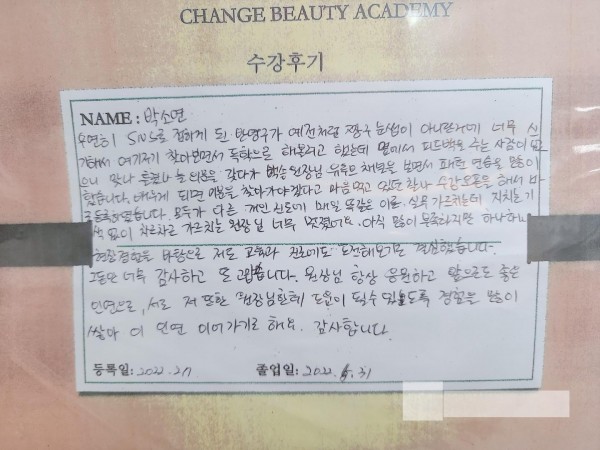 CHANGE BEAUTY ACADEMY
수강후기
NAME : 박소연
우연히 SNS로 접하게 된 반영구가 예전처럼 짱구 눈썹이 아니란거에 너무 신
기해서 여기저기 찾아보면서 독학으로 해볼려고 했는데 옆에서 피드백을 주는 사람이 없
으니 맞나 틀렸나 늘 의문을 갖다가 원장님 유튜브 채널을 보면서 따라 연습을 많이
했습니다. 배우게 되면 이분을 찾아가야겠다고 마음먹고 있던 찰나 수강 오픈을 해서 바
로 등록하였습니다. 모두가 다른 개인 진도에 매일 똑같은 이론, 실무 가르키는데 지치는 기
색 없이 차근차근 가르치는 원장님 너무 멋졌어요. 아직 많이 부족하지만 하나하나
현장경험을 바탕으로 저도 교육과 진로에도 도전해보기로 결심했습니다.
그동안 너무 감사하고 또 고맙습니다. 원장님 항상 응원하고 앞으로도 좋은
인연으로, 서로 저 또한 원장님한테 도움이 될수 있도록 경험을 많이
쌓아 이 인연 이어가기로 해요. 감사합니다.
등록일: 2022. 2/7 졸업일: 2022. 31